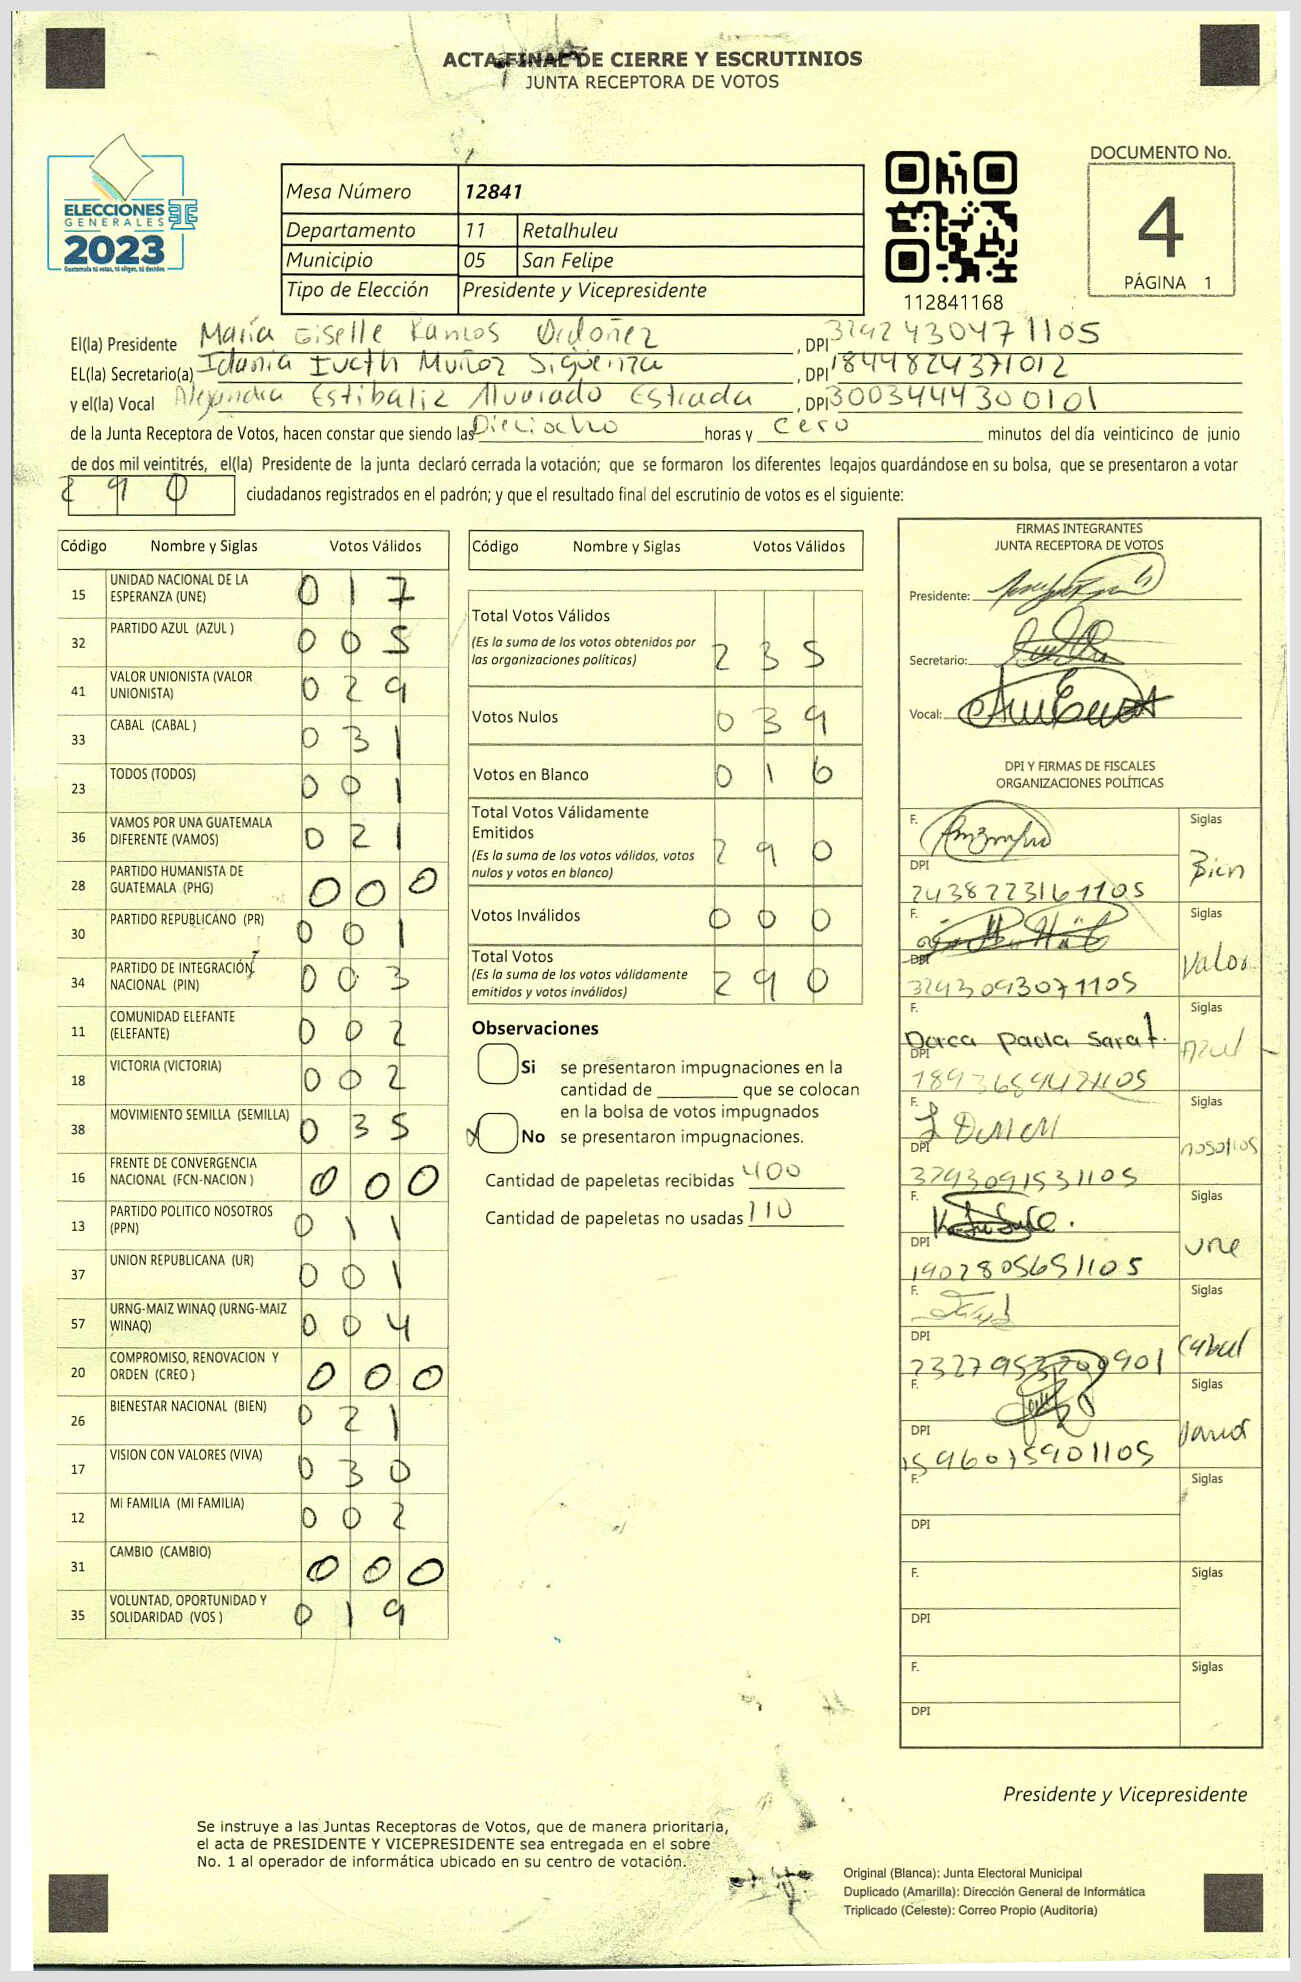 ACTA FINAL DE CIERRE Y ESCRUTINIOS
JUNTA RECEPTORA DE VOTOS
ELECCIONES
GENERALES
2023
Guatemala tú votas, tú eliges, tú decides
Mesa Número 12841
Departamento 11 Retalhuleu
Municipio 05 San Felipe
Tipo de Elección Presidente y Vicepresidente
112841168
DOCUMENTO No.
4
PÁGINA 1
El(la) Presidente María Giselle Ramos Ordoñez, DPI 3292430471105
EL(la) Secretario(a) Idania Iveth Muñoz Sigüenza, DPI 1844824371012
y el(la) Vocal Alejandra Estibaliz Alvarado Estrada, DPI 3003444300101
de la Junta Receptora de Votos, hacen constar que siendo las Dieciocho horas y cero minutos del día veinticinco de junio
de dos mil veintitrés, el(la) Presidente de la junta declaró cerrada la votación; que se formaron los diferentes legajos quardándose en su bolsa, que se presentaron a votar
290 ciudadanos registrados en el padrón; y que el resultado final del escrutinio de votos es el siguiente:
Código Nombre y Siglas Votos Válidos
15 UNIDAD NACIONAL DE LA ESPERANZA (UNE) 0 1 7
32 PARTIDO AZUL (AZUL ) 0 0 5
41 VALOR UNIONISTA (VALOR UNIONISTA) 0 2 9
33 CABAL (CABAL ) 0 3 1
23 TODOS (TODOS) 0 0 1
36 VAMOS POR UNA GUATEMALA DIFERENTE (VAMOS) 0 2 1
28 PARTIDO HUMANISTA DE GUATEMALA (PHG) 0 0 0
30 PARTIDO REPUBLICANO (PR) 0 0 1
34 PARTIDO DE INTEGRACIÓN NACIONAL (PIN) 0 0 3
11 COMUNIDAD ELEFANTE (ELEFANTE) 0 0 2
18 VICTORIA (VICTORIA) 0 0 2
38 MOVIMIENTO SEMILLA (SEMILLA) 0 3 5
16 FRENTE DE CONVERGENCIA NACIONAL (FCN-NACION ) 0 0 0
13 PARTIDO POLITICO NOSOTROS (PPN) 0 1 1
37 UNION REPUBLICANA (UR) 0 0 1
57 URNG-MAIZ WINAQ (URNG-MAIZ WINAQ) 0 0 4
20 COMPROMISO, RENOVACION Y ORDEN (CREO ) 0 0 0
26 BIENESTAR NACIONAL (BIEN) 0 2 1
17 VISION CON VALORES (VIVA) 0 3 0
12 MI FAMILIA (MI FAMILIA) 0 0 2
31 CAMBIO (CAMBIO) 0 0 0
35 VOLUNTAD, OPORTUNIDAD Y SOLIDARIDAD (VOS ) 0 1 9
Código Nombre y Siglas Votos Válidos
Total Votos Válidos
(Es la suma de los votos obtenidos por
las organizaciones políticas) 2 3 5
Votos Nulos 0 3 9
Votos en Blanco 0 1 6
Total Votos Válidamente
Emitidos
(Es la suma de los votos válidos, votos
nulos y votos en blanco) 2 9 0
Votos Inválidos 0 0 0
Total Votos
(Es la suma de los votos válidamente
emitidos y votos inválidos) 2 9 0
Observaciones
Si se presentaron impugnaciones en la
cantidad de ________ que se colocan
en la bolsa de votos impugnados
X No se presentaron impugnaciones.
Cantidad de papeletas recibidas 400
Cantidad de papeletas no usadas 110
FIRMAS INTEGRANTES
JUNTA RECEPTORA DE VOTOS
Presidente:
Secretario:
Vocal:
DPI Y FIRMAS DE FISCALES
ORGANIZACIONES POLÍTICAS
F. Siglas Bien
DPI 2438223161105
F. Siglas Valor
DPI 3293093071105
F. Dorca Paola Sarat. Siglas Azul
DPI
F. Siglas nosotros
DPI 3293091531105
F. Siglas une
DPI 1902805651105
F. Siglas Cabal
DPI
F. Siglas
DPI 1596015901105
F. Siglas
DPI
F. Siglas
DPI
F. Siglas
DPI
Presidente y Vicepresidente
Se instruye a las Juntas Receptoras de Votos, que de manera prioritaria,
el acta de PRESIDENTE Y VICEPRESIDENTE sea entregada en el sobre
No. 1 al operador de informática ubicado en su centro de votación.
Original (Blanca): Junta Electoral Municipal
Duplicado (Amarilla): Dirección General de Informática
Triplicado (Celeste): Correo Propio (Auditoria)